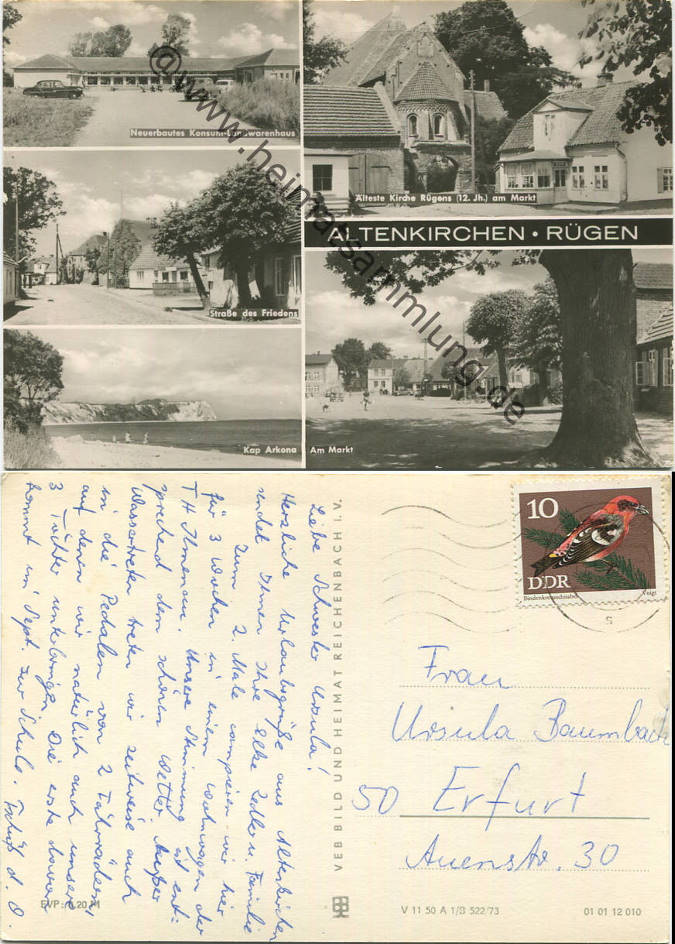 Neuerbautes Konsum-Landwarenhaus
Älteste Kirche Rügens (12. Jh.) am Markt
ALTENKIRCHEN · RÜGEN
Straße des Friedens
Kap Arkona
Am Markt
@www.heimatsammlung.de
Liebe Schwester Ursula!
Herzliche Urlaubsgrüße aus Altenkirchen
sendet Ihnen Ihre Elke u. Familie
Zum 2. Male campieren wir hier
für 3 Wochen in einem Wohnwagen der
TH Ilmenau. Unsere Stimmung ist ent-
sprechend dem schönen Wetter. Außer
Wassertreten treten wir zeitweise auch
in die Pedalen von 2 Fahrrädern,
auf denen wir natürlich auch unsere
3 Töchter unterbringen. Die erste davon
kommt im Sept. zur Schule.
VEB BILD UND HEIMAT REICHENBACH I. V.
10
DDR
Bindenkreuzschnabel
Voigt
Frau
Ursula Baumbach
50 Erfurt
Auenstr. 30
V 11 50 A 1/B 522/73
01 01 12 010